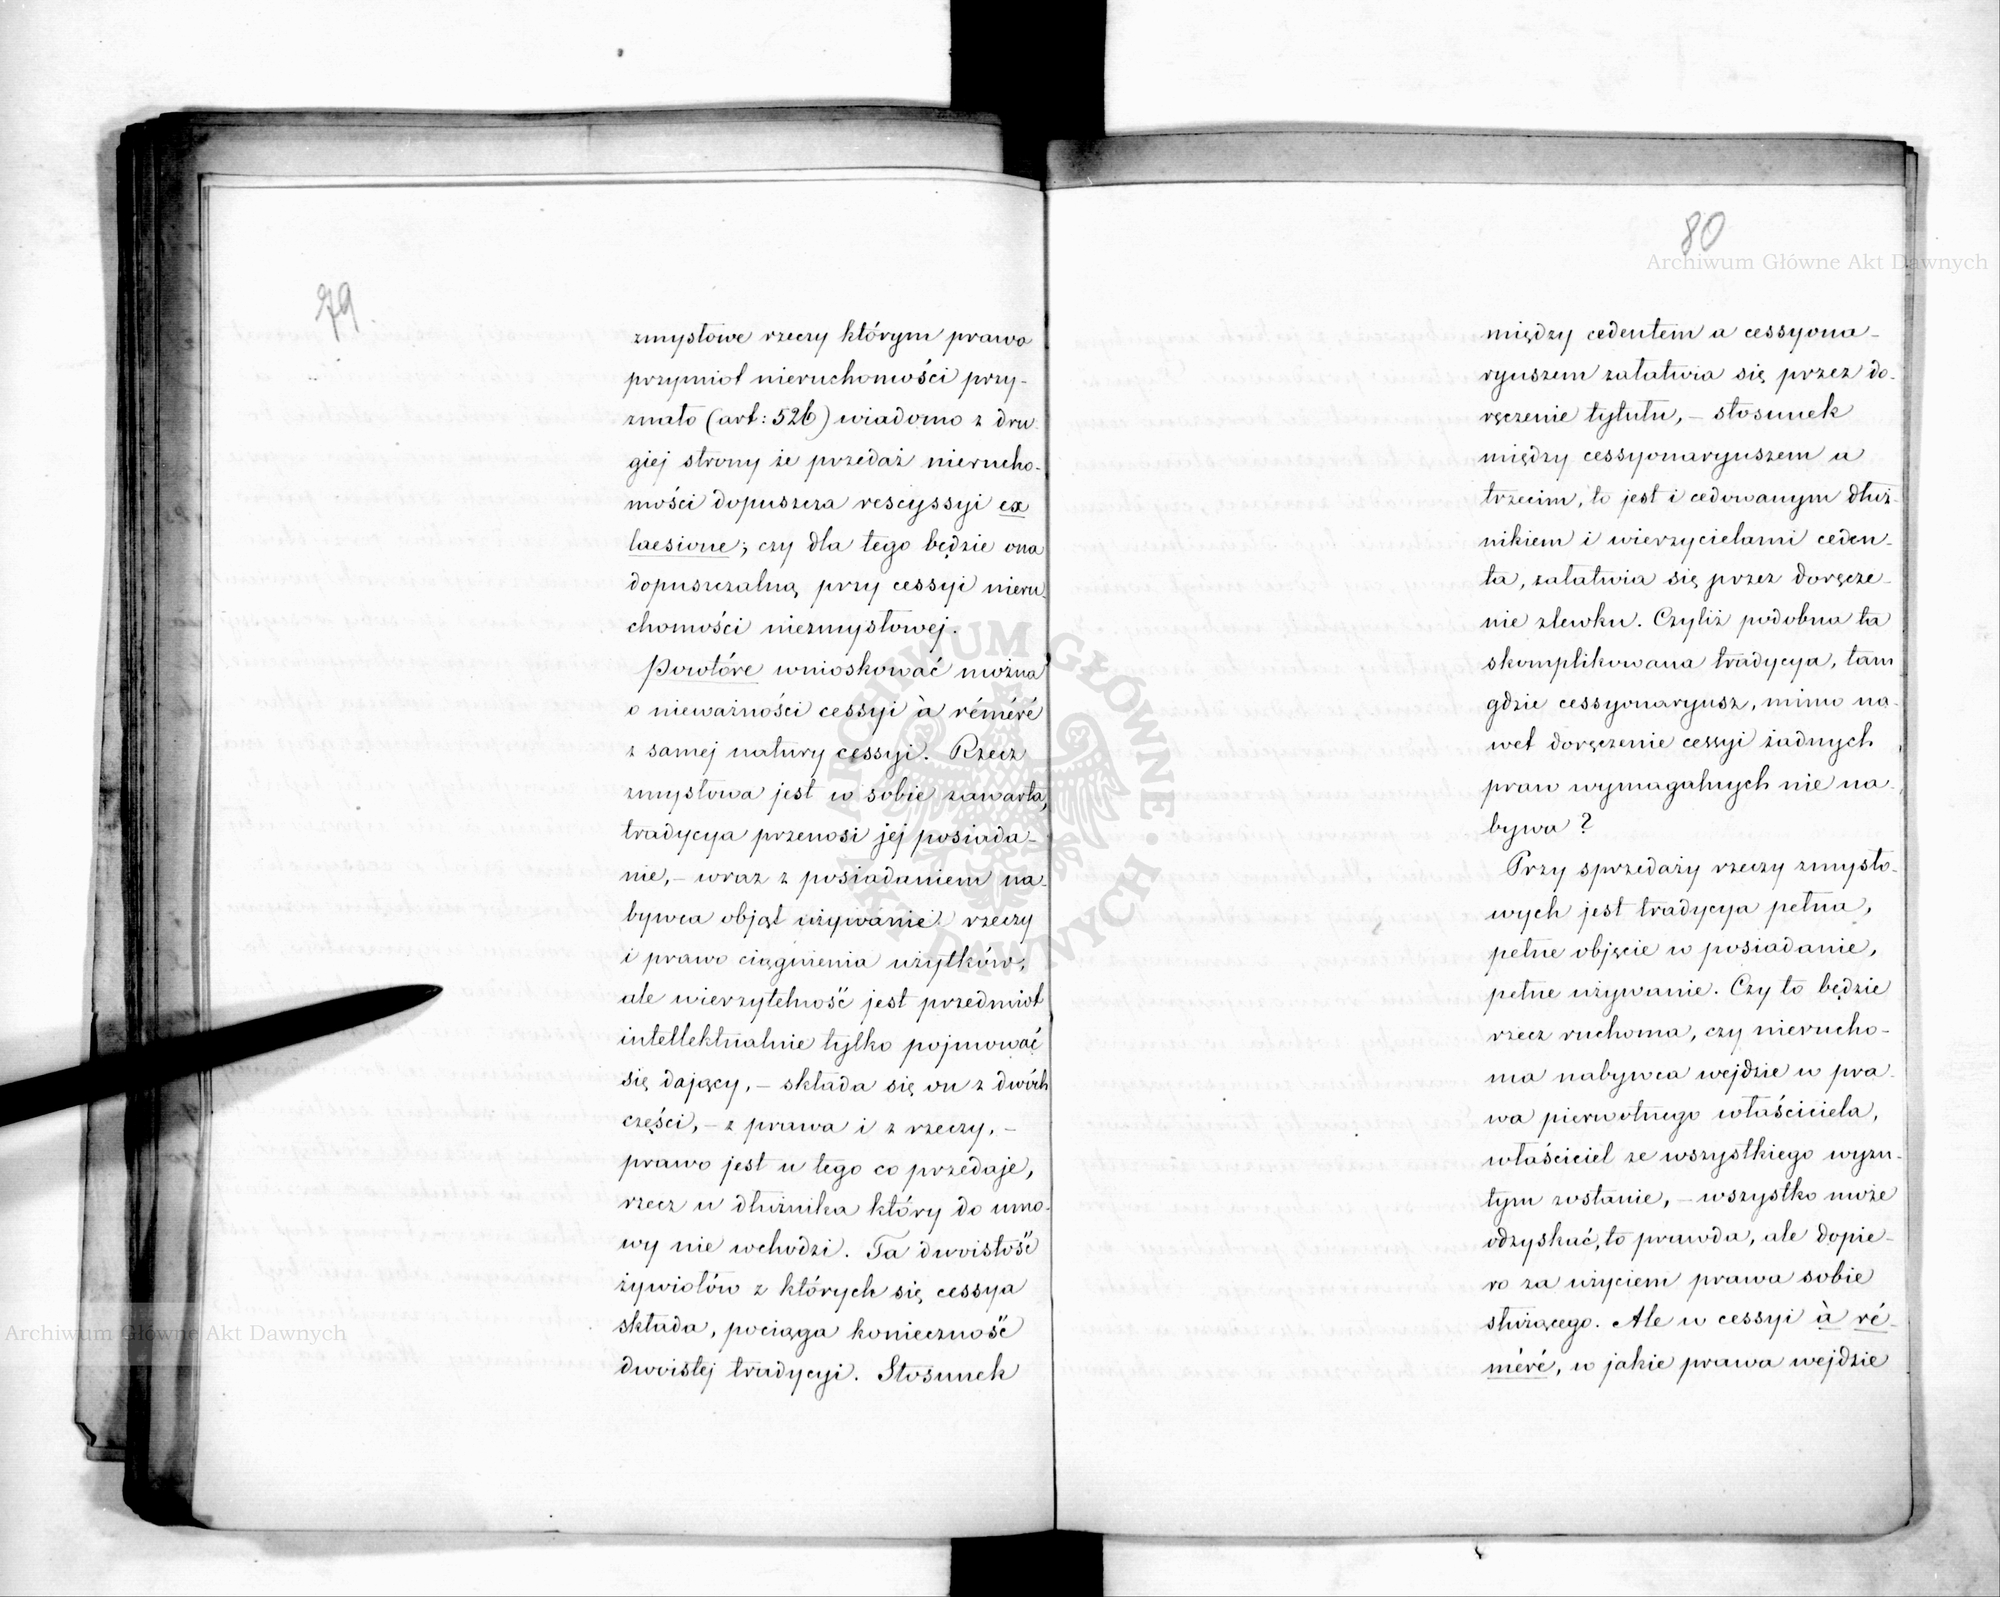 79
zmysłowe rzeczy którym prawo
przymiot nieruchomości przy-
znało (art: 526) wiadomo z dru-
giej strony że przedaż nierucho-
mości dopuszcza rescyssyi ex
laesione; czy dla tego będzie ona
dopuszczalną przy cessyi nieru-
chomości niezmysłowej.
Powtóre wnioskować można
o nieważności cessyi à réméré
z samej natury cessyi. Rzecz
zmysłowa jest w sobie zawarta,
tradycya przenosi jej posiada-
nie, – wraz z posiadaniem na-
bywca objął używanie rzeczy
i prawo ciągnienia użytków;
ale wierzytelność jest przedmiot
intellektualnie tylko pojmować
się dający, – składa się on z dwóch
części, – z prawa i z rzeczy, –
prawo jest u tego co przedaje,
rzecz u dłużnika który do umo-
wy nie wchodzi. Ta dwoistość
żywiołów z których się cessya
składa, pociąga konieczność
dwoistej tradycyi. Stosunek
80
między cedentem a cessyona-
ryuszem załatwia się przez do-
ręczenie tytułu, – stosunek
między cessyonaryuszem a
trzecim, to jest i cedowanym dłuż-
nikiem i wierzycielami ceden-
ta, załatwia się przez doręcze-
nie zlewku. Czyliż podobna ta
skomplikowana tradycya, tam
gdzie cessyonaryusz, mimo na-
wet doręczenie cessyi żadnych
praw wymagalnych nie na-
bywa?
Przy sprzedaży rzeczy zmysło-
wych jest tradycya pełna,
pełne objęcie w posiadanie,
pełne używanie. Czy to będzie
rzecz ruchoma, czy nierucho-
ma nabywca wejdzie w pra-
wa pierwotnego właściciela,
właściciel ze wszystkiego wyzu-
tym zostanie, – wszystko może
odzyskać, to prawda, ale dopie-
ro za użyciem prawa sobie
służącego. Ale w cessyi à ré-
méré, w jakie prawa wejdzie
Archiwum Główne Akt Dawnych
Archiwum Główne Akt Dawnych
ARCHIWUM GŁÓWNE AKT DAWNYCH